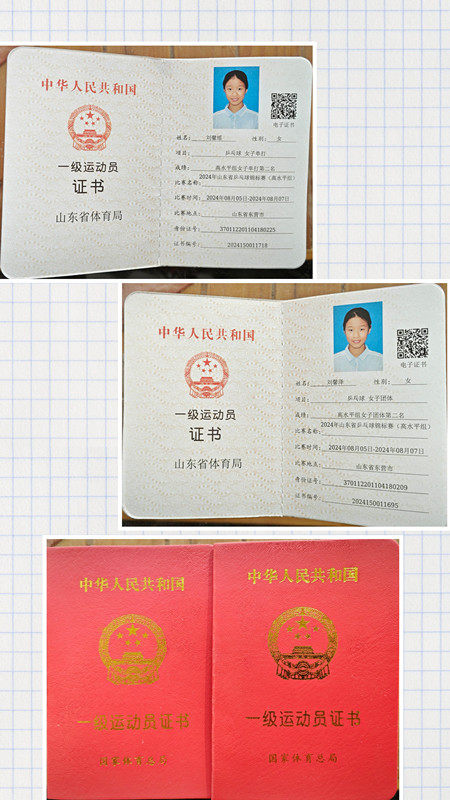 中华人民共和国
一级运动员
证书
山东省体育局
电子证书
姓名: 刘馨瑶 性别: 女
项目: 乒乓球 女子单打
成绩: 高水平组女子单打第二名
比赛名称: 2024年山东省乒乓球锦标赛（高水平组）
比赛时间: 2024年08月05日-2024年08月07日
比赛地点: 山东省东营市
身份证号: 370112201104180225
证书编号: 2024150011718
中华人民共和国
一级运动员
证书
山东省体育局
电子证书
姓名: 刘馨泽 性别: 女
项目: 乒乓球 女子团体
成绩: 高水平组女子团体第二名
比赛名称: 2024年山东省乒乓球锦标赛（高水平组）
比赛时间: 2024年08月05日-2024年08月07日
比赛地点: 山东省东营市
身份证号: 370112201104180209
证书编号: 2024150011695
中华人民共和国
一级运动员证书
国家体育总局
中华人民共和国
一级运动员证书
国家体育总局